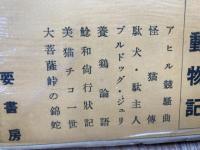 動物記
アヒル競騒曲
怪猫傳
駄犬・駄主人
ブルドッグ・ジュリ
養鶏論語
鯰和尚行狀記
美猫チコ一世
大菩薩峠の錦蛇
要書房